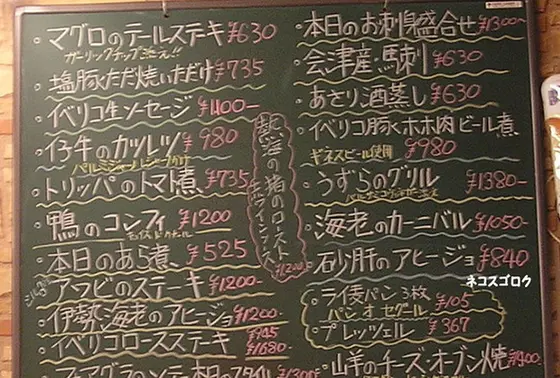 ・マグロのテールステキ ¥630
ガーリックチップ添え!!
・塩豚ただ焼いただけ ¥735
・イベリコ生ソーセージ ¥1100-
・仔牛のカツレツ ¥980
・トリッパのトマト煮 ¥735
・鴨のコンフィ ¥1200
・本日のあら煮 ¥525
・アワビのステーキ ¥1200-
・伊勢海老のアヒージョ ¥1200-
・イベリコロースステキ ¥945
¥1680-
熱海の猪のロースト
赤ワインソース
¥1200
・本日のお刺身盛合せ ¥1300~
・会津産馬刺 ¥630
・あさり酒蒸し ¥630
・イベリコ豚ホホ肉ビール煮
ギネスビール使用 ¥980
・うずらのグリル ¥1380-
・海老のカーニバル ¥1050-
・砂肝のアヒージョ ¥840
ネコスゴロク
・ライ麦パン3枚 ¥105
パン・オ・セーグル
・プレッツェル ¥367
・山羊のチーズ・オーブン焼